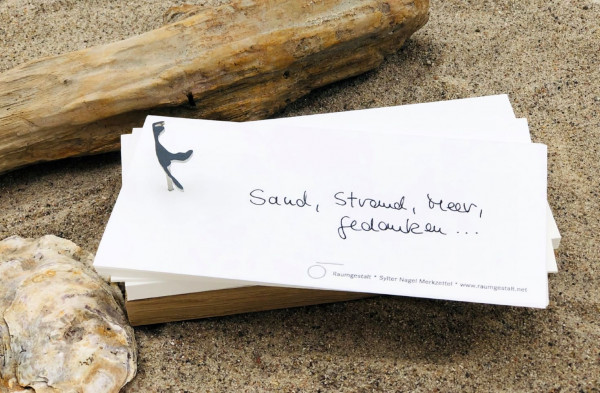 Sand, Strand, Meer,
gedanken ...
Raumgestalt * Sylter Nagel Merkzettel * www.raumgestalt.net